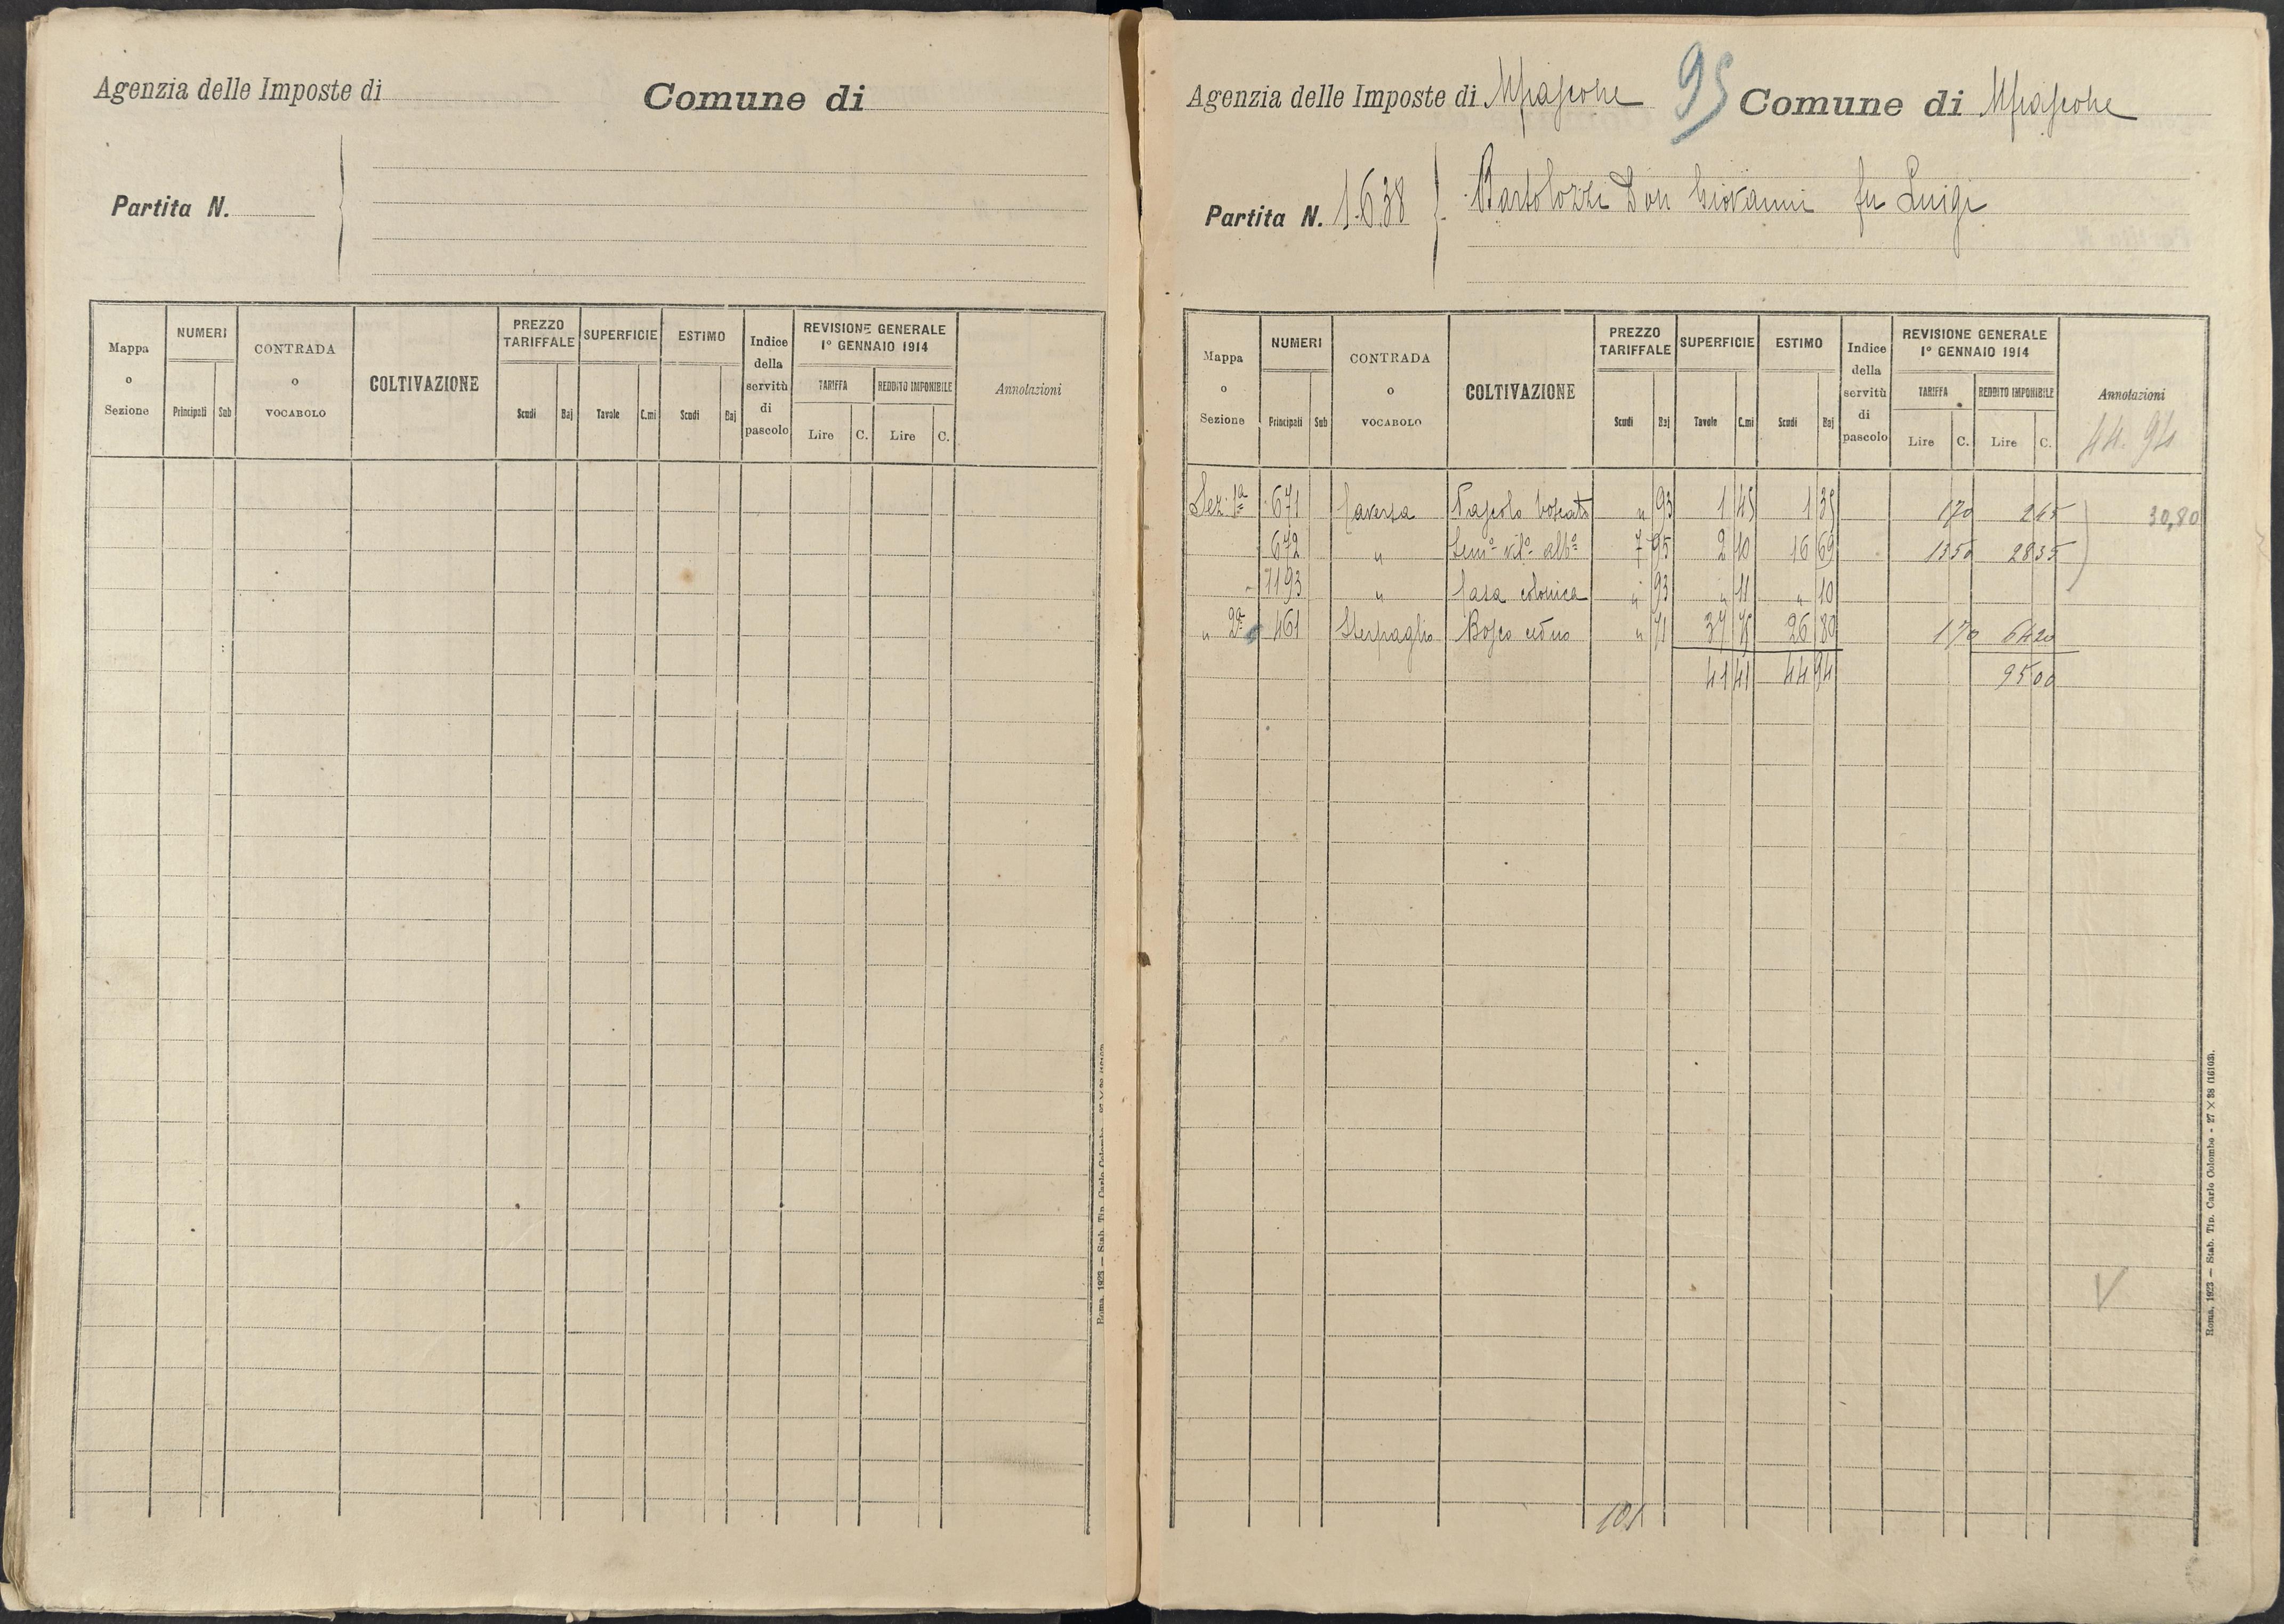 Agenzia delle Imposte di
Comune di
Partita N.
Mappa o Sezione
NUMERI
Principali
Sub
CONTRADA o VOCABOLO
COLTIVAZIONE
PREZZO TARIFFALE
Scudi
Baj
SUPERFICIE
Tavole
C.mi
ESTIMO
Scudi
Baj
Indice della servitù di pascolo
REVISIONE GENERALE
1° GENNAIO 1914
TARIFFA
Lire
C.
REDDITO IMPONIBILE
Lire
C.
Annotazioni
Agenzia delle Imposte di Mfiascone
95
Comune di Mfiascone
Partita N. 1638
Bartolozzi Don Giovanni fu Luigi
Mappa o Sezione
NUMERI
Principali
Sub
CONTRADA o VOCABOLO
COLTIVAZIONE
PREZZO TARIFFALE
Scudi
Baj
SUPERFICIE
Tavole
C.mi
ESTIMO
Scudi
Baj
Indice della servitù di pascolo
REVISIONE GENERALE
1° GENNAIO 1914
TARIFFA
Lire
C.
REDDITO IMPONIBILE
Lire
C.
Annotazioni
44.94
Sez. 1ª 671 Caversa Pascolo boscato " 93 1 45 1 35 1 70 2 45 30,80
672 " Semo vito albo 7 95 2 10 16 69 13 50 28 35
1193 " Casa colonica " 93 " 11 " 10
" 2ª 461 Sterpaglio Bosco ceduo " 71 37 75 26 80 1 70 64 20
41 41 44 94 95 00
101
Roma, 1923 — Stab. Tip. Carlo Colombo - 27 × 38 (16103).